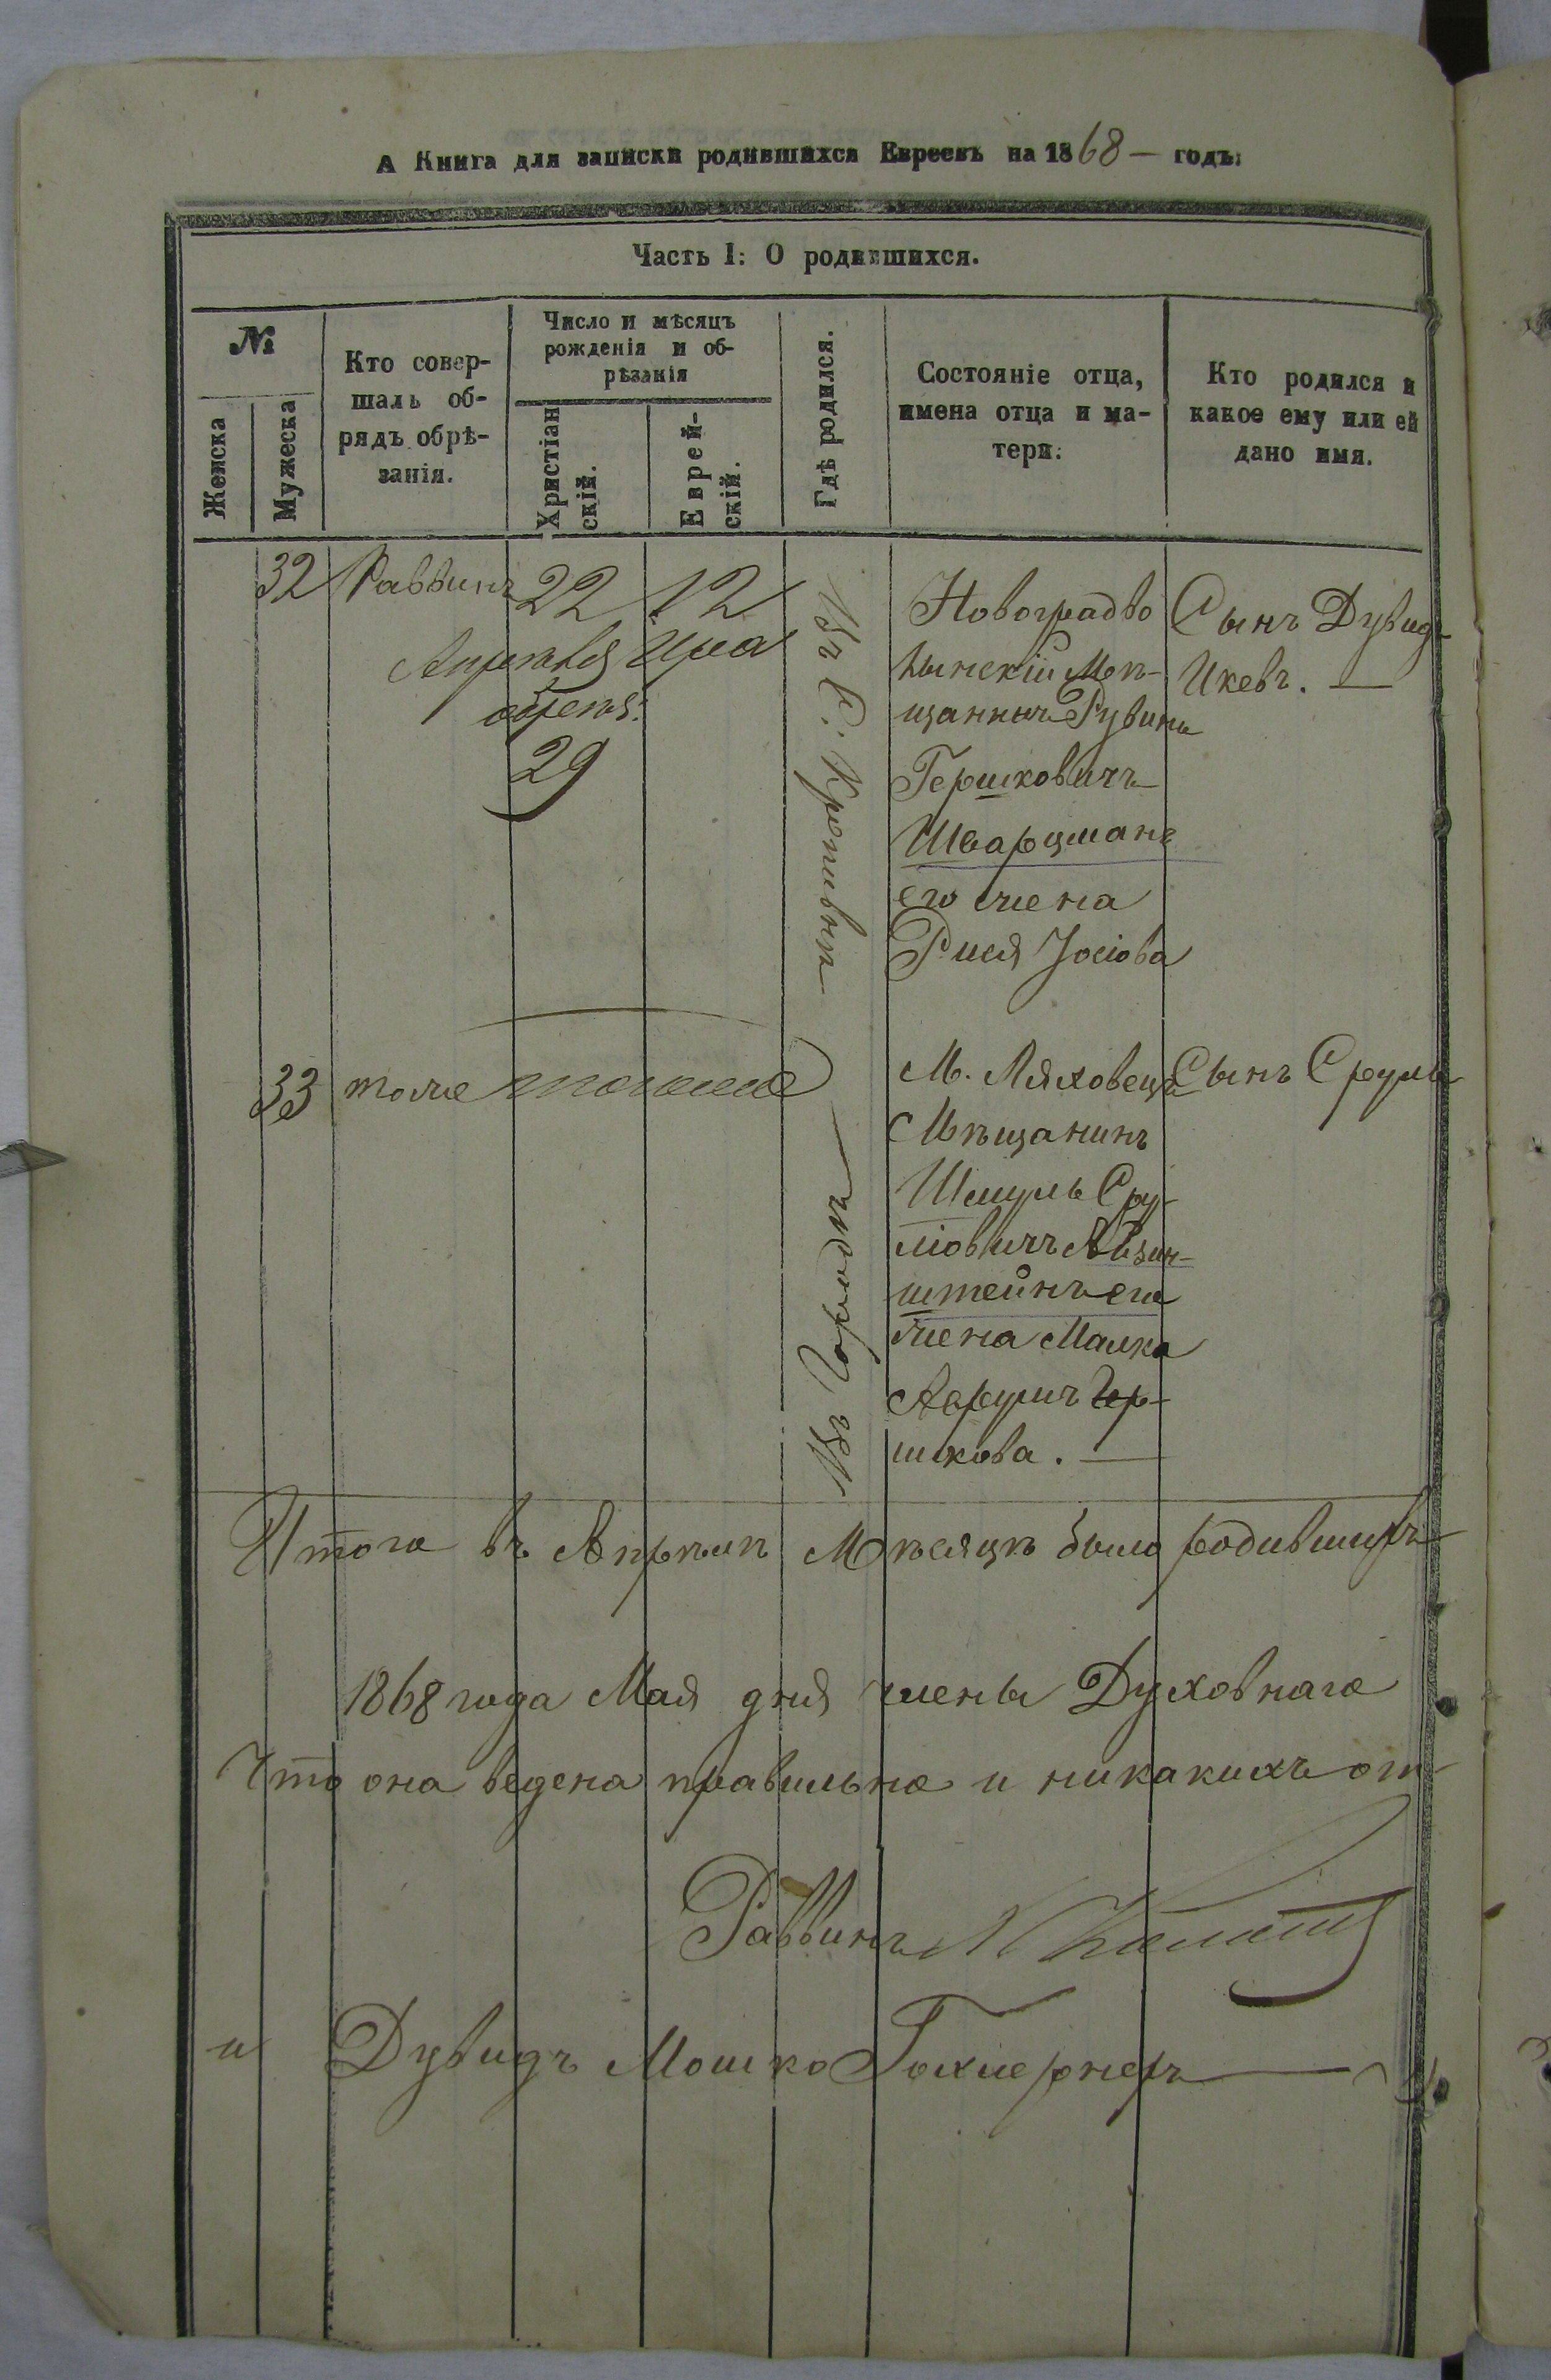 А Книга для записки родившихся Евреевъ на 1868 — годъ:
Часть I: О родившихся.
№
Женска
Мужеска
Кто совер-
шалъ об-
рядъ обрѣ-
занія.
Число и мѣсяцъ
рожденія и об-
рѣзанія
Христіан
скій.
Еврей-
скій.
Гдѣ родился.
Состояніе отца,
имена отца и ма-
тери:
Кто родился и
какое ему или ей
дано имя.
32
Раввинъ
22
Апрѣля
обрѣзъ:
29
12
Ира
Въ С. Крепивнѣ
Новоградво
лынскій Мѣ-
щанинъ Рувинъ
Гершковичъ
Шварцманъ
его жена
Рися Іосіова
Сынъ Дувидъ
Икевъ. —
33
тоже
тогоже
Въ Городѣ
М. Ляховецъ
Мѣщанинъ
Шмуль Сру-
ліовичъ Айзин-
штейнъ его
жена Малка
Гер-
шкова. —
Сынъ Сруль
Итого въ Апрѣлѣ Мѣсяцѣ было родившихъ
1868 года Мая дня члены Духовнаго
Что она ведена правильно и никакихъ от-
Раввинъ
и Дувидъ Мошко